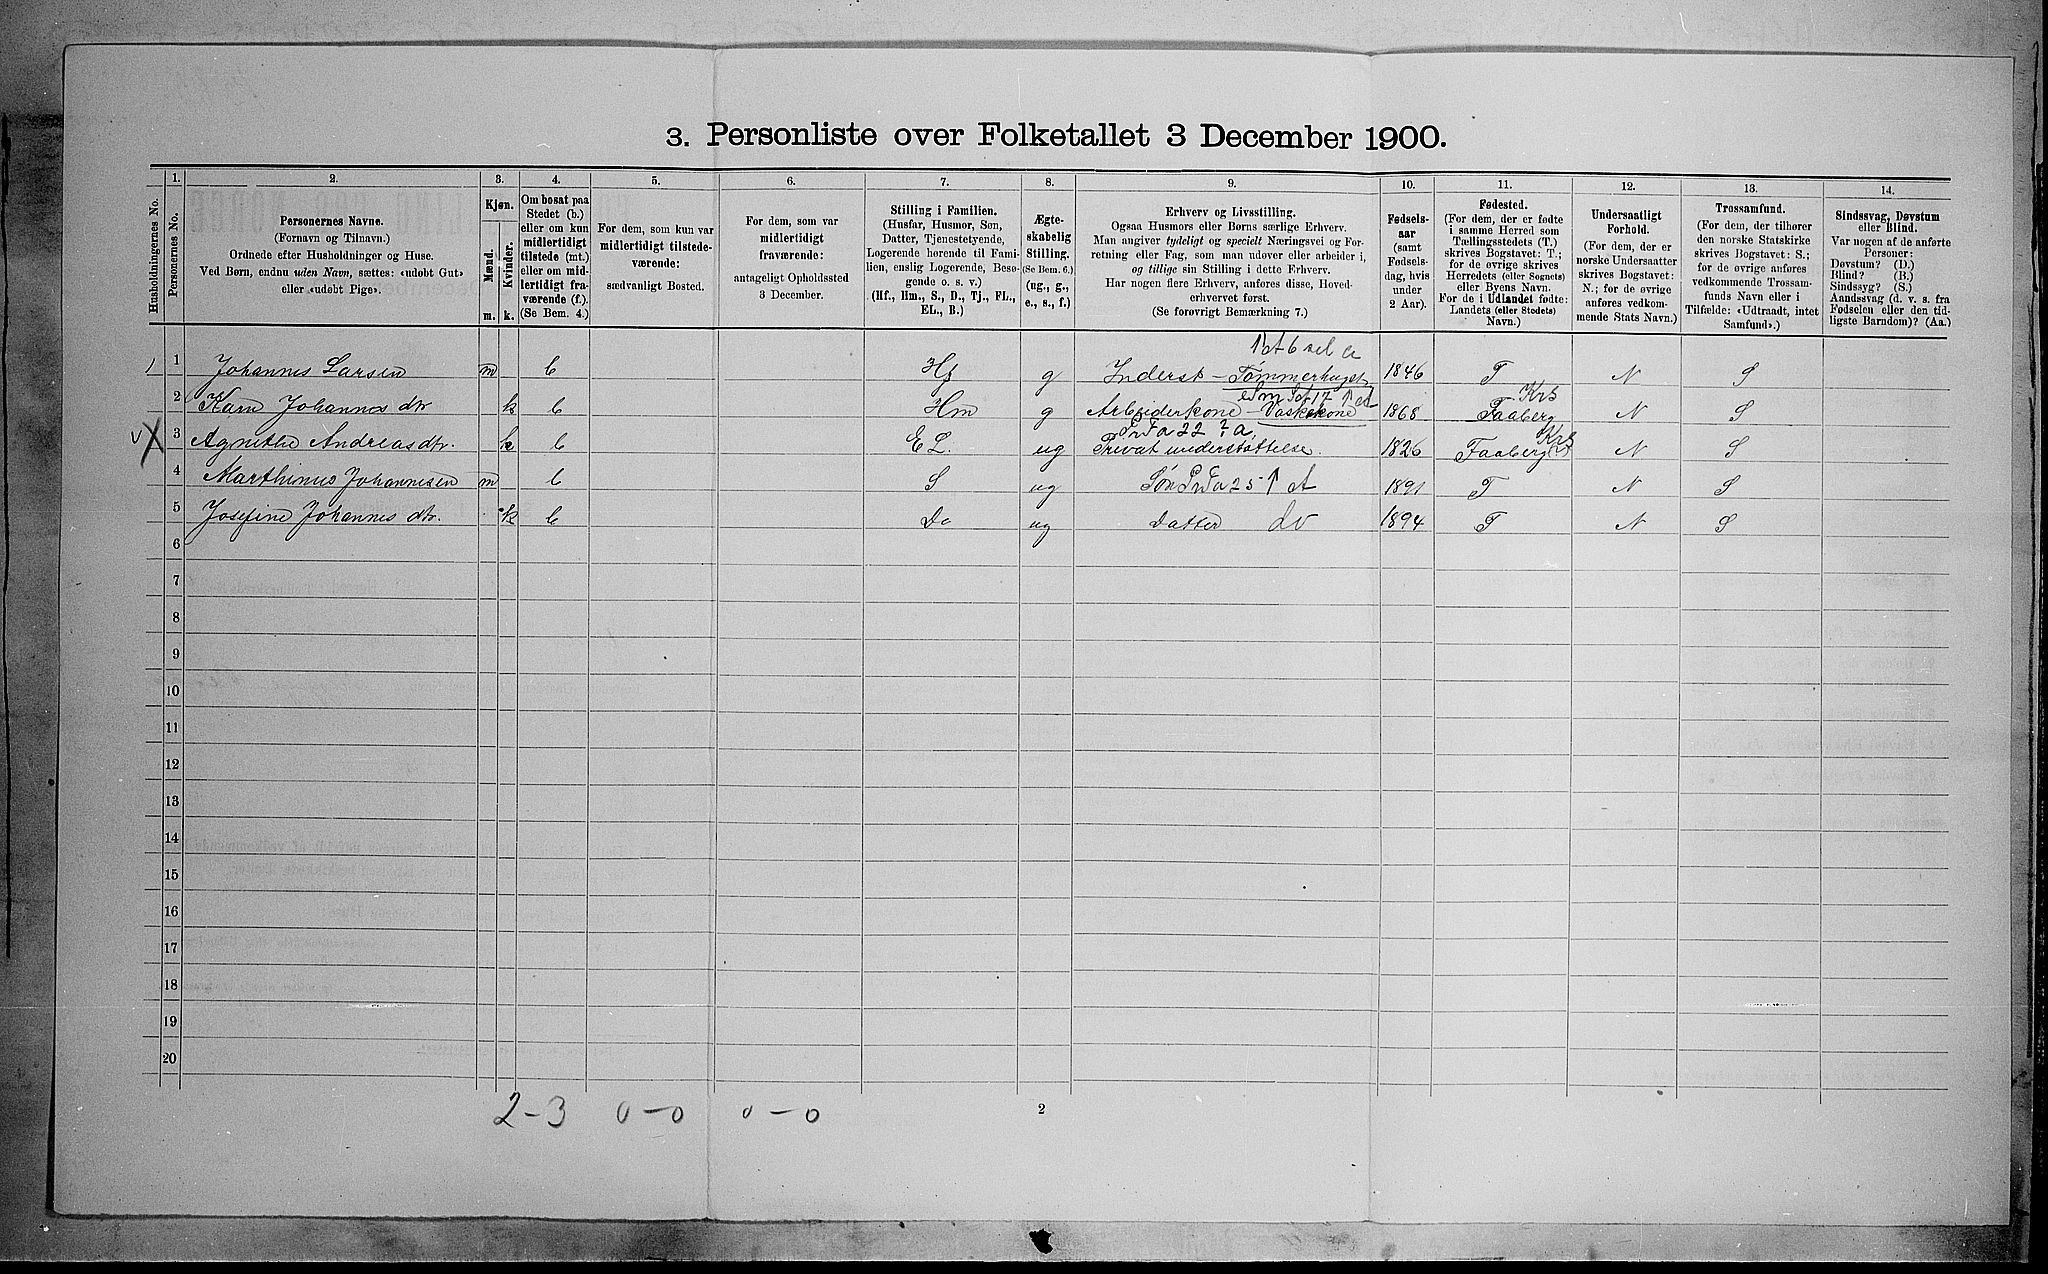 3. Personliste over Folketallet 3 December 1900.
Husholdningernes No.
1.
Personernes No.
2.
Personernes Navne.
(Fornavn og Tilnavn.)
Ordnede efter Husholdninger og Huse.
Ved Børn, endnu uden Navn, sættes: «udøbt Gut»
eller «udøbt Pige».
3.
Kjøn.
Mænd.
Kvinder.
m. k.
4.
Om bosat paa
Stedet (b.)
eller om kun
midlertidigt
tilstede (mt.)
eller om mid-
lertidigt fra-
værende (f.)
(Se Bem. 4.)
5.
For dem, som kun var
midlertidigt tilstede-
værende:
sædvanligt Bosted.
6.
For dem, som var
midlertidigt
fraværende:
antageligt Opholdssted
3 December.
7.
Stilling i Familien.
(Husfar, Husmor, Søn,
Datter, Tjenestetyende,
Logerende hørende til Fami-
lien, enslig Logerende, Besø-
gende o. s. v.)
(Hf., Hm., S., D., Tj., FL.,
EL., B.)
8.
Ægte-
skabelig
Stilling.
(Se Bem. 6.)
(ug., g.,
e., s., f.)
9.
Erhverv og Livsstilling.
Ogsaa Husmors eller Børns særlige Erhverv.
Man angiver tydeligt og specielt Næringsvei og For-
retning eller Fag, som man udøver eller arbeider i,
og tillige sin Stilling i dette Erhverv.
Har nogen flere Erhverv, anføres disse, Hoved-
erhvervet først.
(Se forøvrigt Bemærkning 7.)
10.
Fødsels-
aar
(samt
Fødsels-
dag, hvis
under
2 Aar).
11.
Fødested.
(For dem, der er fødte
i samme Herred som
Tællingsstedets (T.)
skrives Bogstavet: T.;
for de øvrige skrives
Herredets (eller Sognets)
eller Byens Navn.
For de i Udlandet fødte:
Landets (eller Stedets)
Navn.)
12.
Undersaatligt
Forhold.
(For dem, der er
norske Undersaatter
skrives Bogstavet:
N.; for de øvrige
anføres vedkom-
mende Stats Navn.)
13.
Trossamfund.
(For dem, der tilhører
den norske Statskirke
skrives Bogstavet: S.;
for de øvrige anføres
vedkommende Trossam-
funds Navn eller i
Tilfælde: «Udtraadt, intet
Samfund».)
14.
Sindssvag, Døvstum
eller Blind.
Var nogen af de anførte
Personer:
Døvstum? (D.)
Blind? (B.)
Sindssyg? (S.)
Aandssvag (d. v. s. fra
Fødselen eller den tid-
ligste Barndom)? (Aa.)
1 1 Johannes Larsen m b Hf g Inderst - Tømmerhugst 1846 T N S
2 Kari Johannes dtr k b Hm g Arbeiderkone - Vaskekone 1868 Faaberg Krs N S
3 Agnethe Andreasdtr. k b EL. ug Privat understøttelse. 1826 Faaberg Krs N S
4 Marthinus Johannesen m b S ug Søn 1891 T N S
5 Josefine Johannes dtr. k b Do ug Datter dv 1894 T N S
6
7
8
9
10
11
12
13
14
15
16
17
18
19
20
2-3 0-0 0-0
2